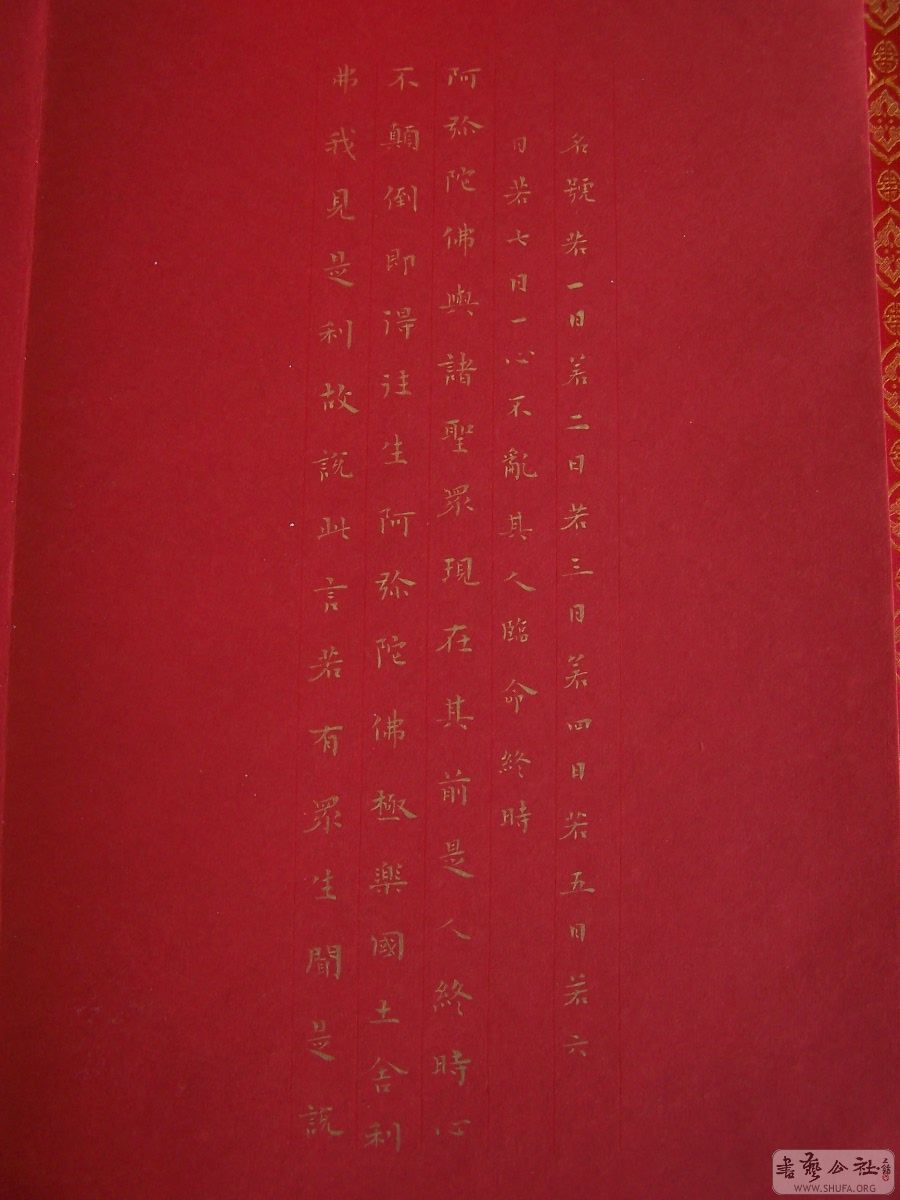 名號若一日若二日若三日若四日若五日若六
日若七日一心不亂其人臨命終時
阿弥陀佛與諸聖眾現在其前是人終時心
不顛倒即得往生阿弥陀佛極樂國土舍利
弗我見是利故說此言若有眾生聞是說
書藝公社
WWW.SHUFA.ORG